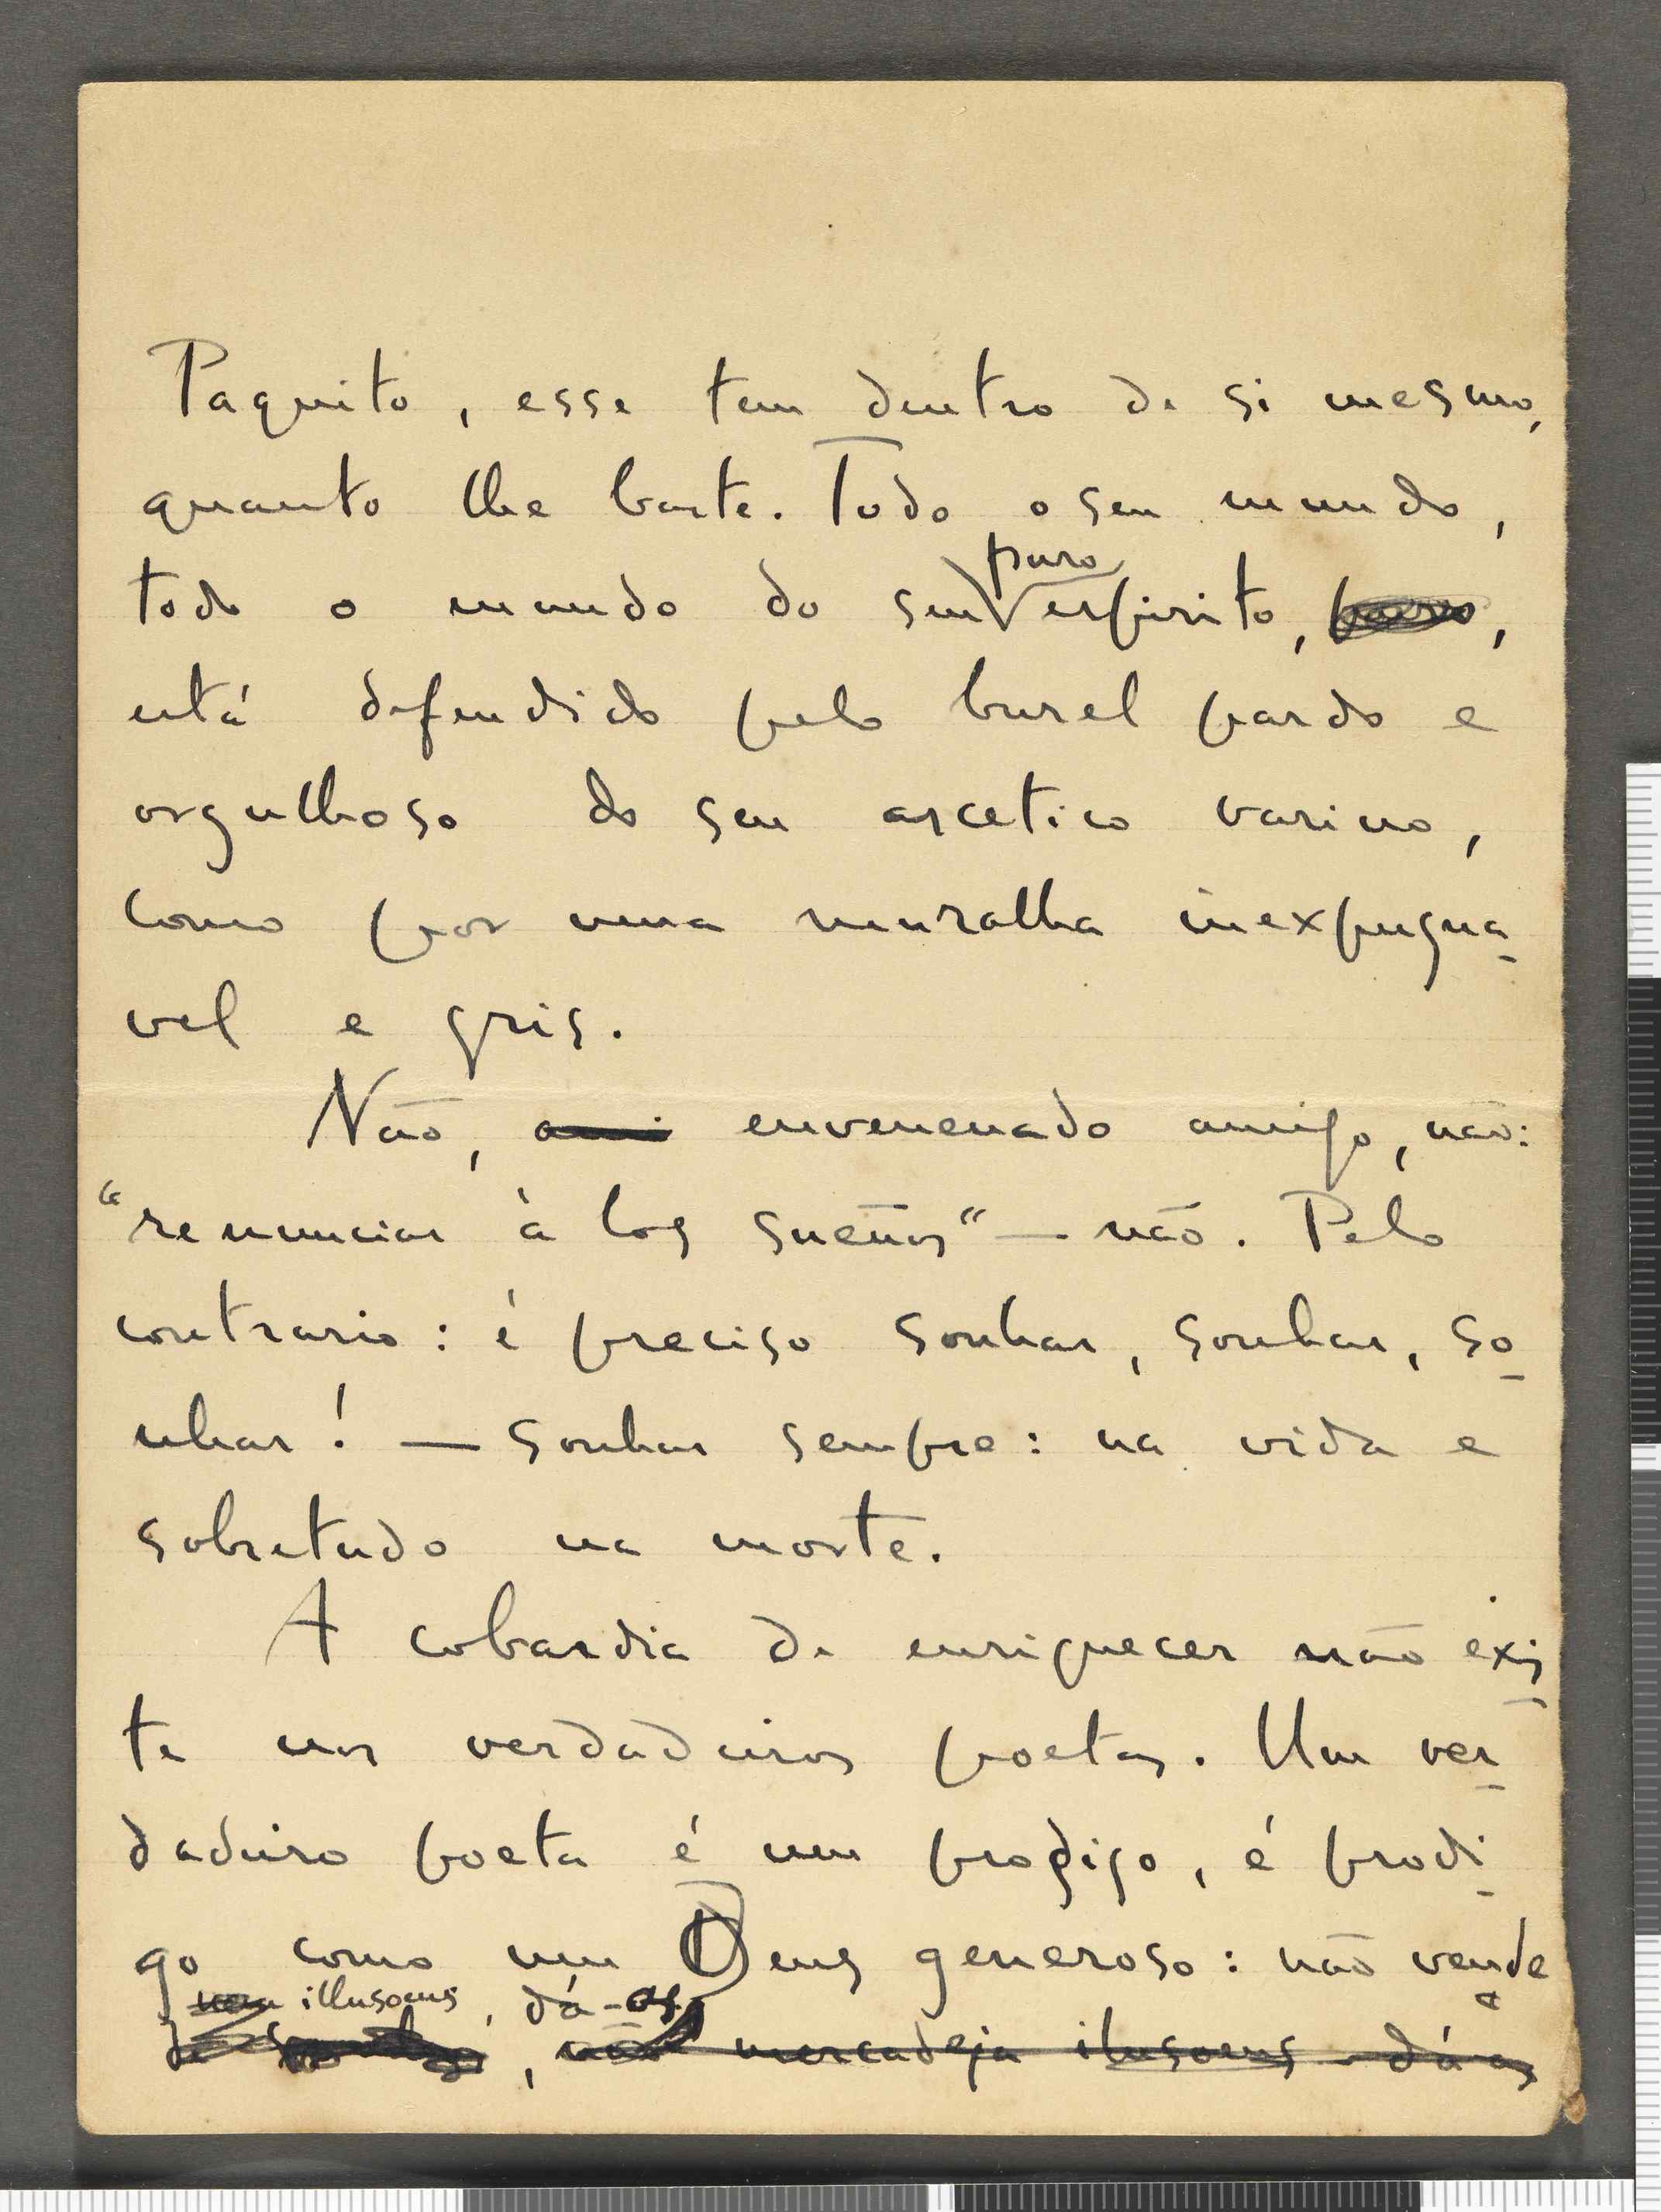 Paquito, esse tem dentro de si mesmo,
quanto lhe baste. Todo o seu mundo,
puro
todo o mundo do seu espirito, puro,
está defendido pelo burel pardo e
orgulhoso do seu ascetico varino,
como por uma muralha inexpugna-
vel e gris.
Não, ami envenenado amigo, não:
"renunciar à los sueños" — não. Pelo
contrario: é preciso sonhar, sonhar, so-
nhar! — sonhar sempre: na vida e
sobretudo na morte.
A cobardia de enriquecer não exis-
te nos verdadeiros poetas. Um ver-
dadeiro poeta é um prodigo, é prodi-
go como um Deus generoso: não vende
illusoens, dá-as.
, não mercadeja ilusoens - dá as